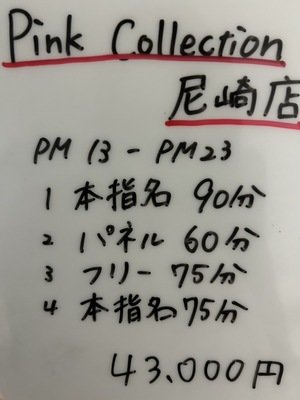 Pink Collection
尼崎店
PM 13 - PM 23
1 本指名 90分
2 パネル 60分
3 フリー 75分
4 本指名 75分
43.000円